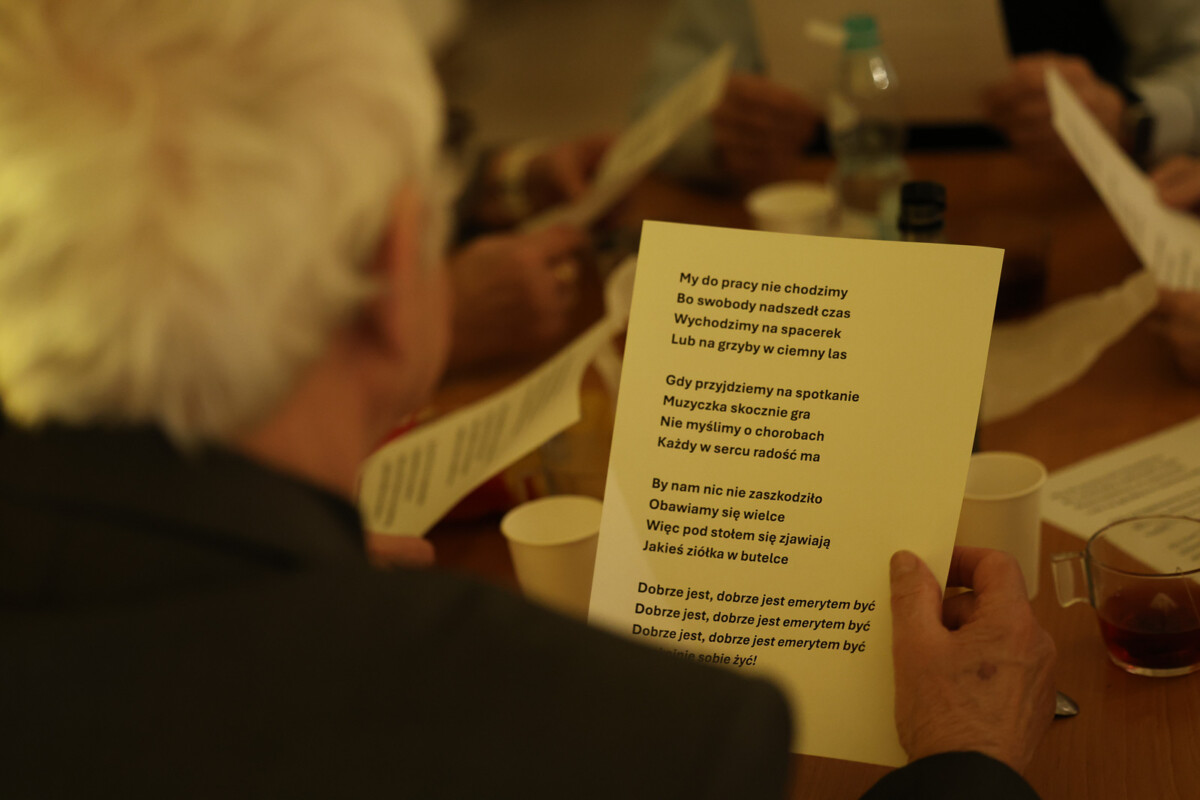 My do pracy nie chodzimy
Bo swobody nadszedł czas
Wychodzimy na spacerek
Lub na grzyby w ciemny las
Gdy przyjdziemy na spotkanie
Muzyczka skocznie gra
Nie myślimy o chorobach
Każdy w sercu radość ma
By nam nic nie zaszkodziło
Obawiamy się wielce
Więc pod stołem się zjawiają
Jakieś ziółka w butelce
Dobrze jest, dobrze jest emerytem być
Dobrze jest, dobrze jest emerytem być
Dobrze jest, dobrze jest emerytem być
sobie żyć!